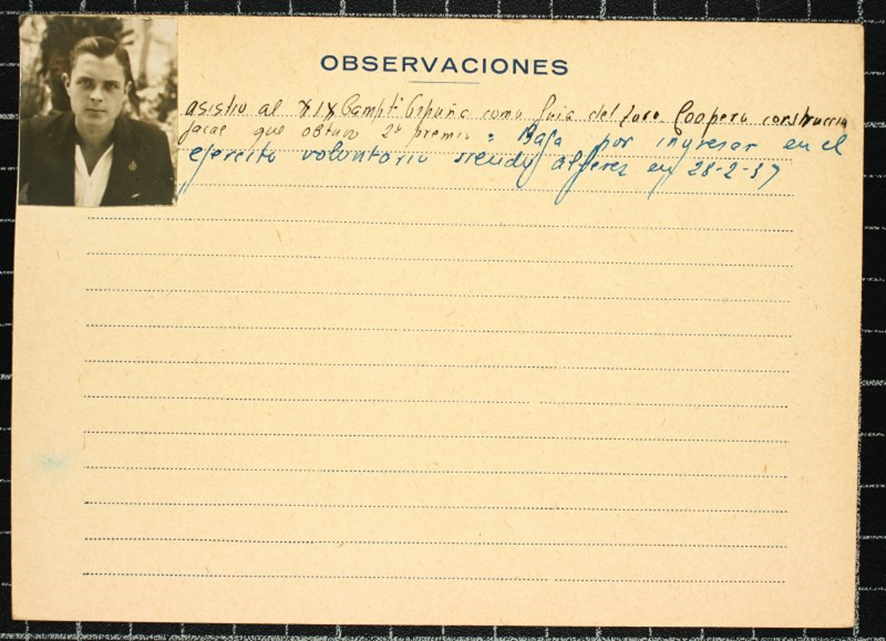 OBSERVACIONES
asistio al XIX Campt España como Guia del Coopero construccion
que obtuvo 2º premio. Baja por ingresar en el
ejercito voluntario siendo alferez en 28-2-37